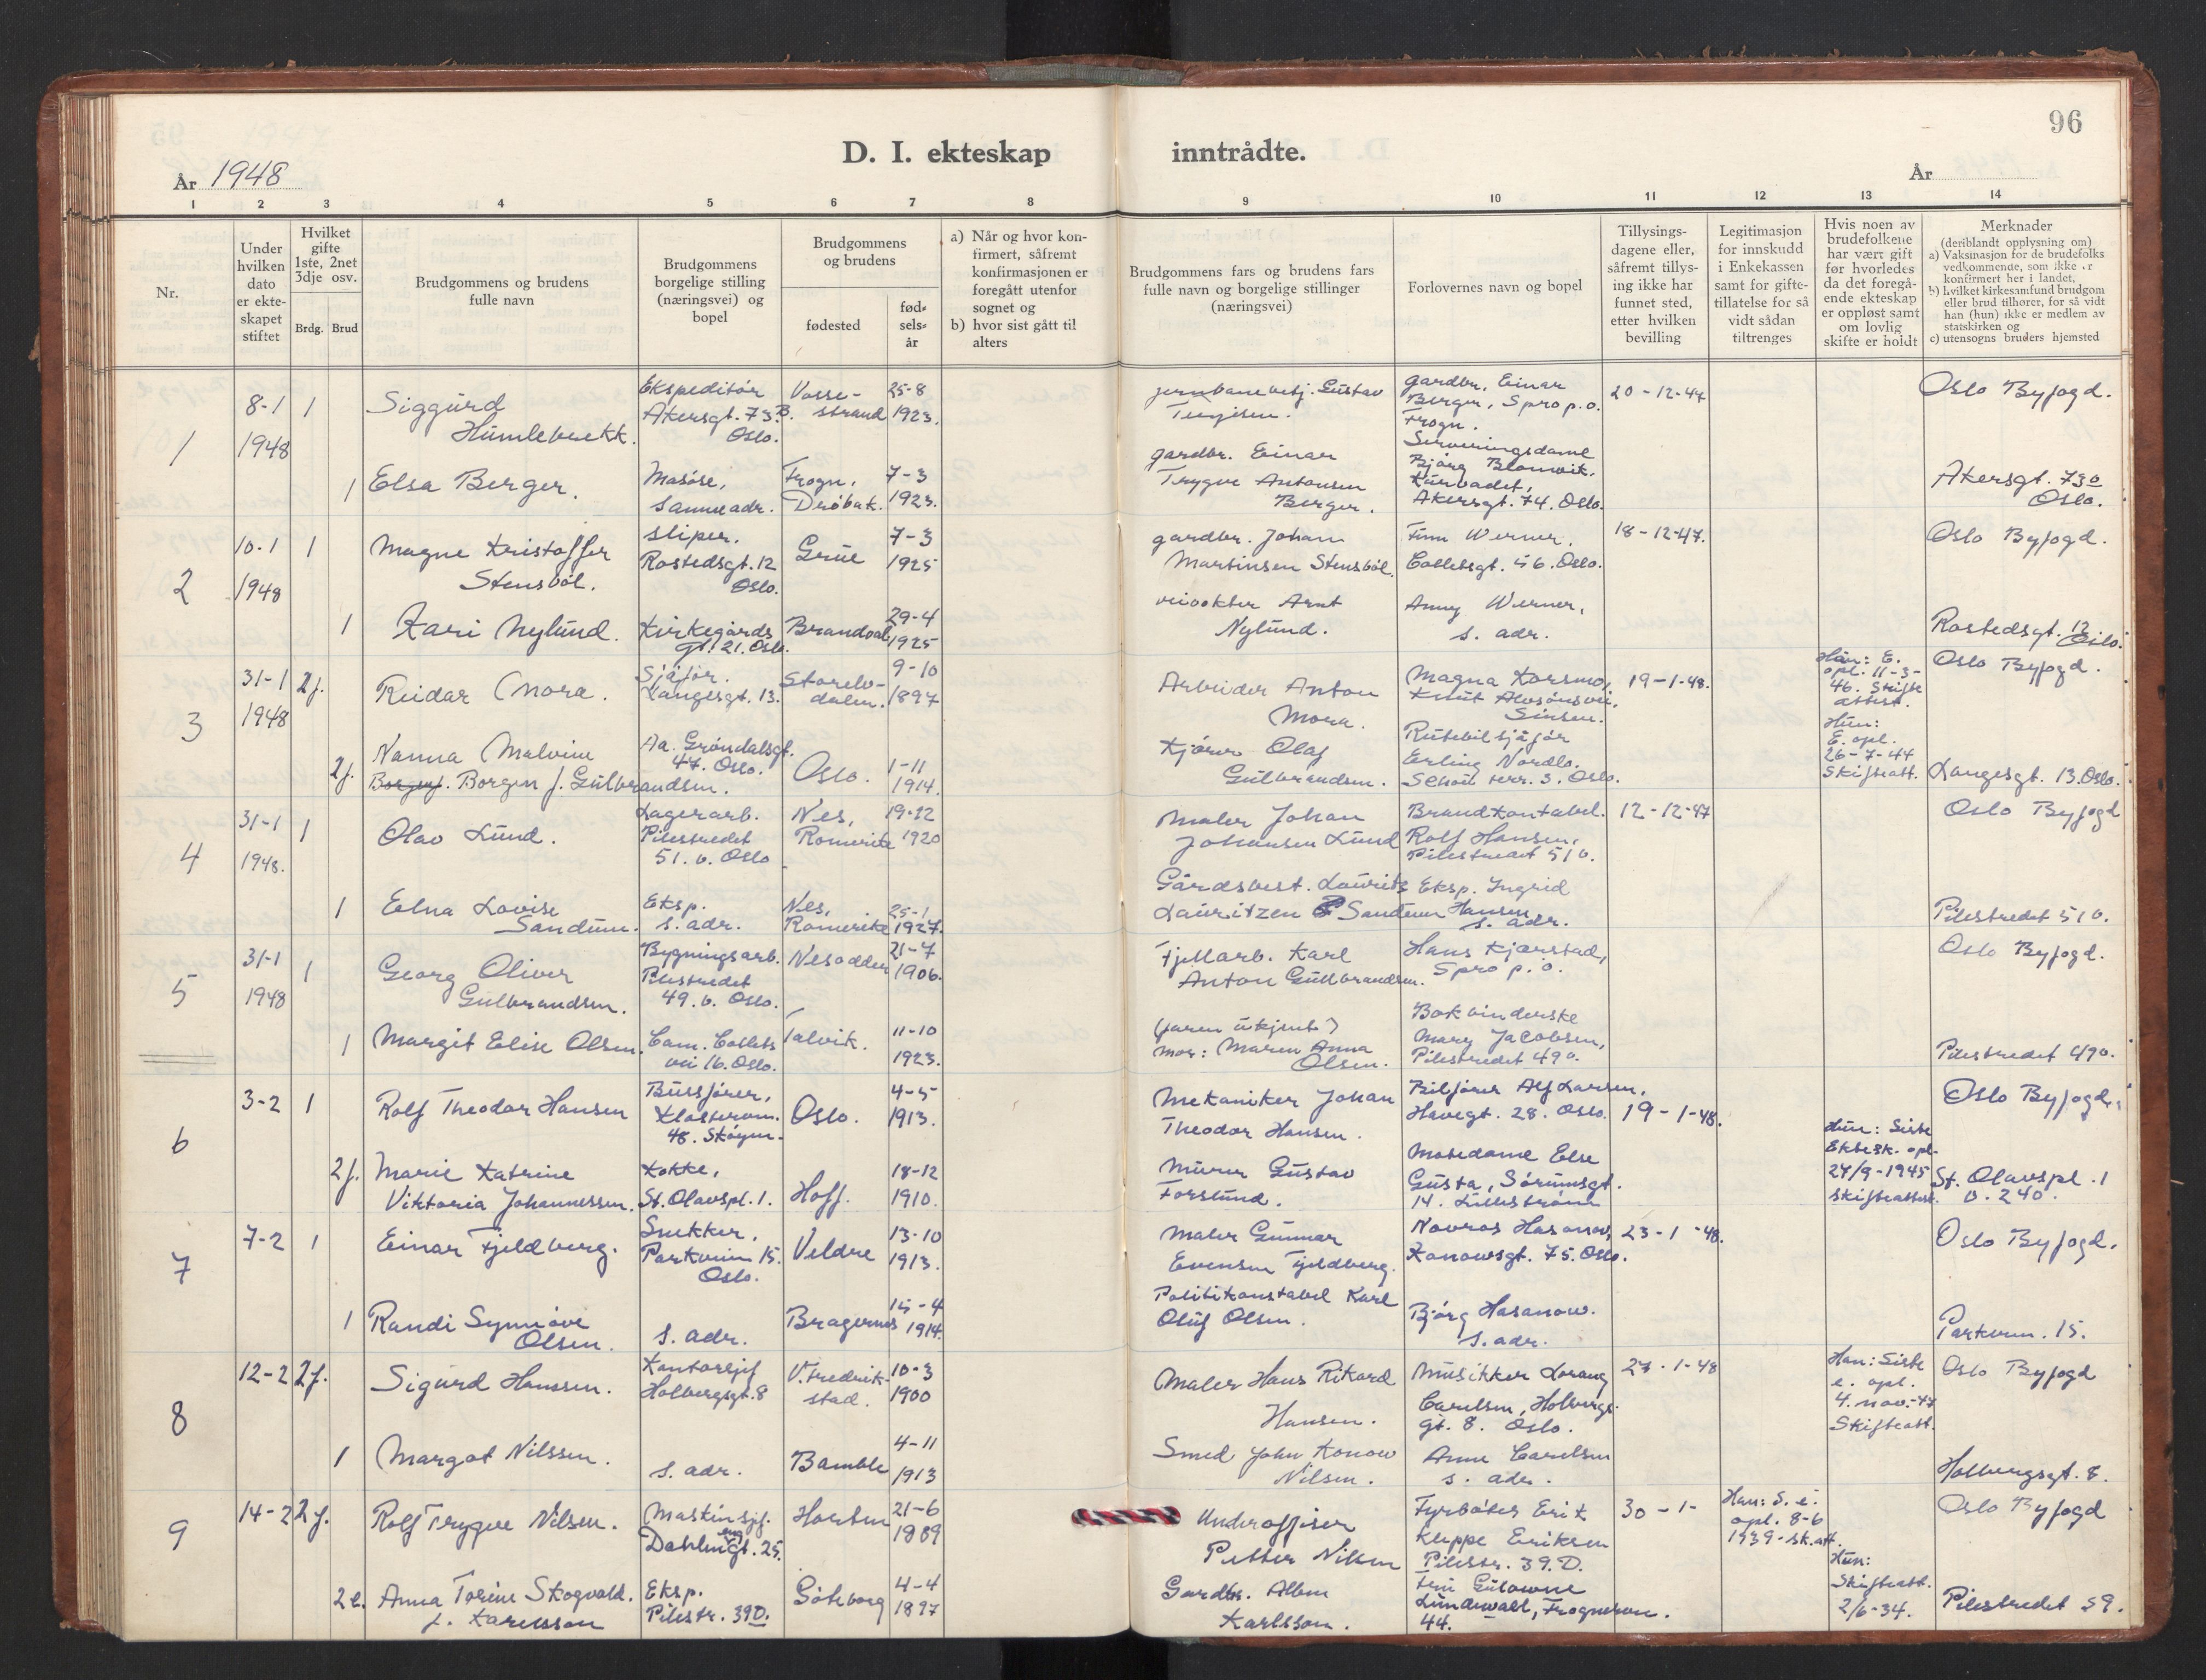 96
D. I. ekteskap inntrådte.
År 1948
År
1 2 3 4 5 6 7 8 9 10 11 12 13 14
Nr.
Under
hvilken
dato
er ekte-
skapet
stiftet
Hvilket
gifte
1ste, 2net
3dje osv.
Brdg. Brud
Brudgommens og brudens
fulle navn
Brudgommens
borgelige stilling
(næringsvei) og
bopel
Brudgommens
og brudens
fødested
fød-
sels-
år
a) Når og hvor kon-
firmert, såfremt
konfirmasjonen er
foregått utenfor
sognet og
b) hvor sist gått til
alters
Brudgommens fars og brudens fars
fulle navn og borgelige stillinger
(næringsvei)
Forlovernes navn og bopel
Tillysings-
dagene eller,
såfremt tillys-
ing ikke har
funnet sted,
etter hvilken
bevilling
Legitimasjon
for innskudd
i Enkekassen
samt for gifte-
tillatelse for så
vidt sådan
tiltrenges
Hvis noen av
brudefolkene
har vært gift
før hvorledes
da det foregå-
ende ekteskap
er oppløst samt
om lovlig
skifte er holdt
Merknader
(deriblandt opplysning om)
a) Vaksinasjon for de brudefolks
vedkommende, som ikke er
konfirmert her i landet,
b) hvilket kirkesamfund brudgom
eller brud tilhører, for så vidt
han (hun) ikke er medlem av
statskirken og
c) utensogns bruders hjemsted
1
8-1
1948
1
Siggurd
Humlebrekk.
Ekspeditør
Akersgt. 73 B.
Oslo.
Vosse-
strand
25-8
1923.
jernbanebetj. Gustav
gardbr. Einar
Berger, Spro p.o.
Frogn.
20-12-47
Oslo Byfogd.
1
Elsa Berger.
Masøse,
samme adr.
Frogn,
Drøbak.
7-3
1923.
gardbr. Einar
Trygve Antonsen
Berger.
Serveringsdame
Bjørg Blomvik,
Akersgt. 74. Oslo.
Akersgt. 73b
Oslo.
2
10-1
1948
1
Magne Kristoffer
Stensbøl.
sliper.
Rostedsgt. 12
Oslo.
Grue
7-3
1925
gardbr. Johan
Martinsen Stensbøl.
Finn Werner,
Colletsgt. 56. Oslo.
18-12-47.
Oslo Byfogd.
1
Kari Nylund.
Kirkegårds
gt. 21. Oslo.
Brandval
29-4
1925
veivokter Arnt
Nylund.
Anny Werner,
s. adr.
Rostedsgt. 12
Oslo.
3
31-1
1948
2f.
Reidar Mora.
Sjåfør.
Langesgt. 13.
Storelv-
dalen.
9-10
1897
Arbeider Anton
Mora.
Magna Korsmo,
Knut Alvsønsvei,
Sinsen.
19-1-48.
Han: E.
opl. 11-3-
46. Skifte
attest.
Oslo Byfogd.
2f.
Nanna Malvine
Borgen f. Gulbrandsen.
Aa. Grøndalsgt.
47. Oslo.
Oslo.
1-11
1914.
Kjører Olaf
Gulbrandsen.
Rutebilsjåfør
Erling Nordlo.
Schou terr. 3. Oslo.
Hun:
E. opl.
26-7-44
Skifteatt.
Langesgt. 13. Oslo.
4
31-1
1948.
1
Olav Lund.
Lagerarb.
Pilestredet
51. b. Oslo
Nes,
Romerike
19-12
1920
Maler Johan
Johansen Lund
Brandkonstabel.
Rolf Hansen,
Pilestredet 51 b.
12-12-47
Oslo Byfogd
1
Edna Lovise
Sandum.
Eksp.
s. adr.
Nes,
Romerike
25-1
1927.
Gårdsbest. Laurits
Lauritzen Sandum
Eksp. Ingrid
Hansen,
s. adr.
Pilestredet 51 b.
5
31-1
1948
1
Georg Oliver
Gulbrandsen.
Bygningsarb.
Pilestredet
49. b. Oslo.
Nesodden
21-7
1906.
Fjellarb. Karl
Anton Gullbrandsen.
Hans Kjærstad,
Spro p. å.
Oslo Byfogd.
1
Margit Elise Olsen.
Cam. Collets
vei 16. Oslo.
Talvik.
11-10
1923.
(faren ukjent)
mor: Maren Anna
Olsen.
Bokbinderske
Mary Jacobsen,
Pilestredet 49 b.
Pilestredet 49b.
6
3-2
1
Rolf Theodor Hansen
Bussfører,
48. Skøyen.
Oslo.
4-5
1913.
Mekaniker Johan
Theodor Hansen.
Bilfører Alf Larsen,
Havegt. 28. Oslo.
19-1-48.
Oslo Byfogd.
2f.
Marie Katrine
Viktoria Johannessen.
Kokke,
St. Olavspl. 1.
Hoff.
18-12
1910.
Murer Gustav
Forslund.
Motedame Else
Gusta, Sørumsgt.
14. Lillestrøm
Hun: Siste
Ektesk. opl.
24/9-1945
skifteattest.
St. Olavspl. 1
v. 240.
7
7-2
1
Einar Fjeldberg.
Snekker,
Parkveien 15.
Oslo.
Veldre
13-10
1913.
Maler Gunnar
Evensen Fjeldberg.
Novras Hasanow,
Konowsgt. 75. Oslo.
23-1-48.
Oslo Byfogd.
1
Randi Synnøve
Olsen.
s. adr.
Bragernes
15-4
1914.
Politikonstabel Karl
Oluf Olsen.
Bjørg Hasanow.
s. adr.
Parkven. 15.
8
12-2
2f.
Sigurd Hanssen.
Kontorsjef
Holbergsgt. 8
V. Fredrik-
stad.
10-3
1900
Maler Hans Rikard
Hansen.
Musikker Lorang
Carelsen, Holbergs-
gt. 8. Oslo.
27-1-48
Han: Siste
e. opl.
4. nov.-47
Skifteatt.
Oslo Byfogd
1
Margot Nilssen.
s. adr.
Bamble
4-11
1913
Smed John Konow
Nilsen.
Anne Carelsen
s. adr.
Holbergsgt. 8.
9
14-2
2f.
Rolf Trygve Nilsen.
Maskinsjef.
Dahlengt. 25.
Horten
21-6
1889
Underoffiser
Petter Nilsen
Fyrbøter Erik
Kleppe Eriksen
Pilestr. 39. D.
30-1-
Han: S. e.
opl. 8-6
1939-sk.att.
Oslo Byfogd
2e.
Anna Torine Skogvold.
f. Karlsson
Eksp.
Pilestr. 39D.
Göteborg
4-4
1897
Gardbr. Alben
Karlsson.
Lundewall, Frognerven.
44.
Hun:
Skifteatt.
2/6-34.
Pilestredet 59.